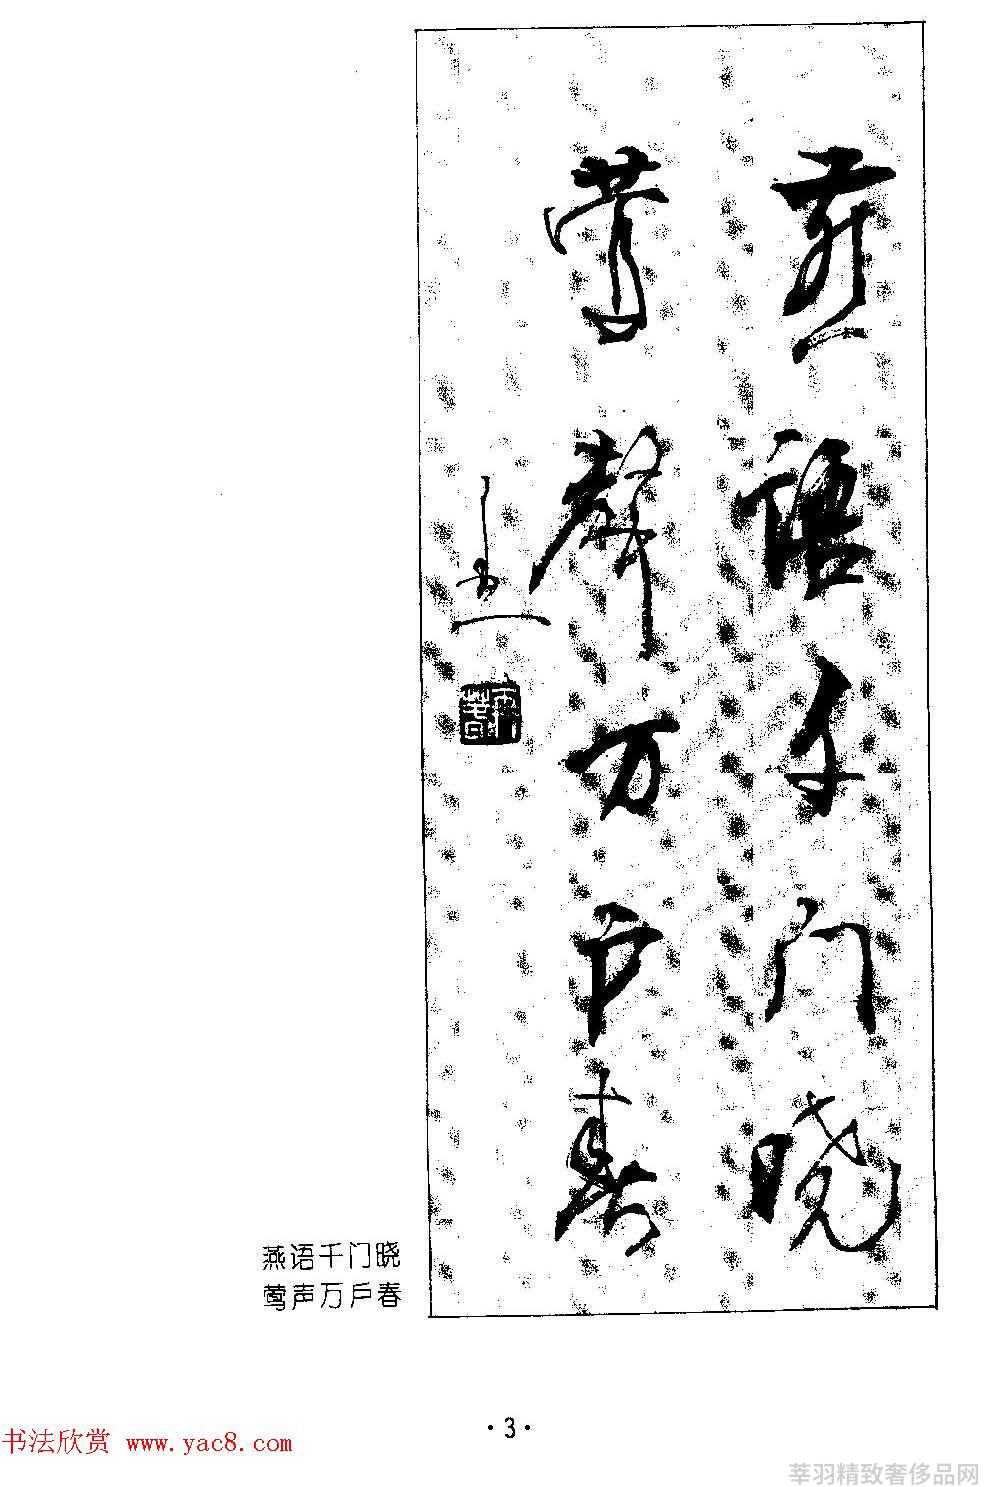 燕语千门晓
莺聲万户春
燕语千门晓
莺声万户春
·3·
书法欣赏 www.yac8.com
莘羽精致奢侈品网